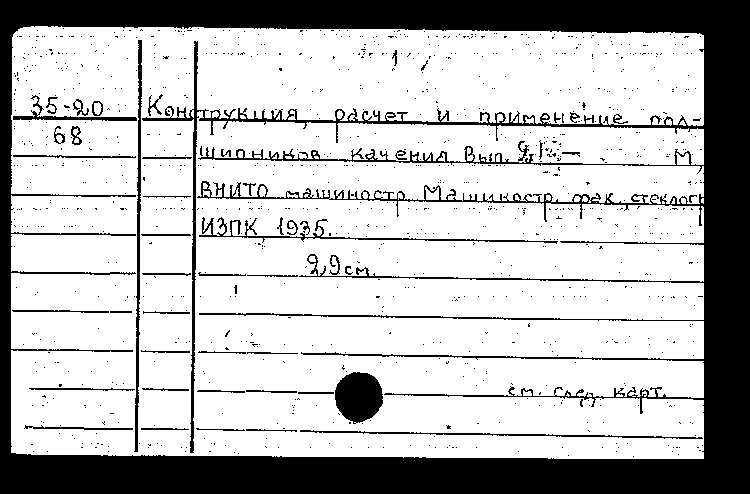 1
35-20 Конструкция, расчет и применение под-
68
шипников качения Вып. 2, М,
ВНИТО машиностр. Машиностр. фак, стеклогр
ИЗПК 1935.
2,9 см.
см. след. карт.